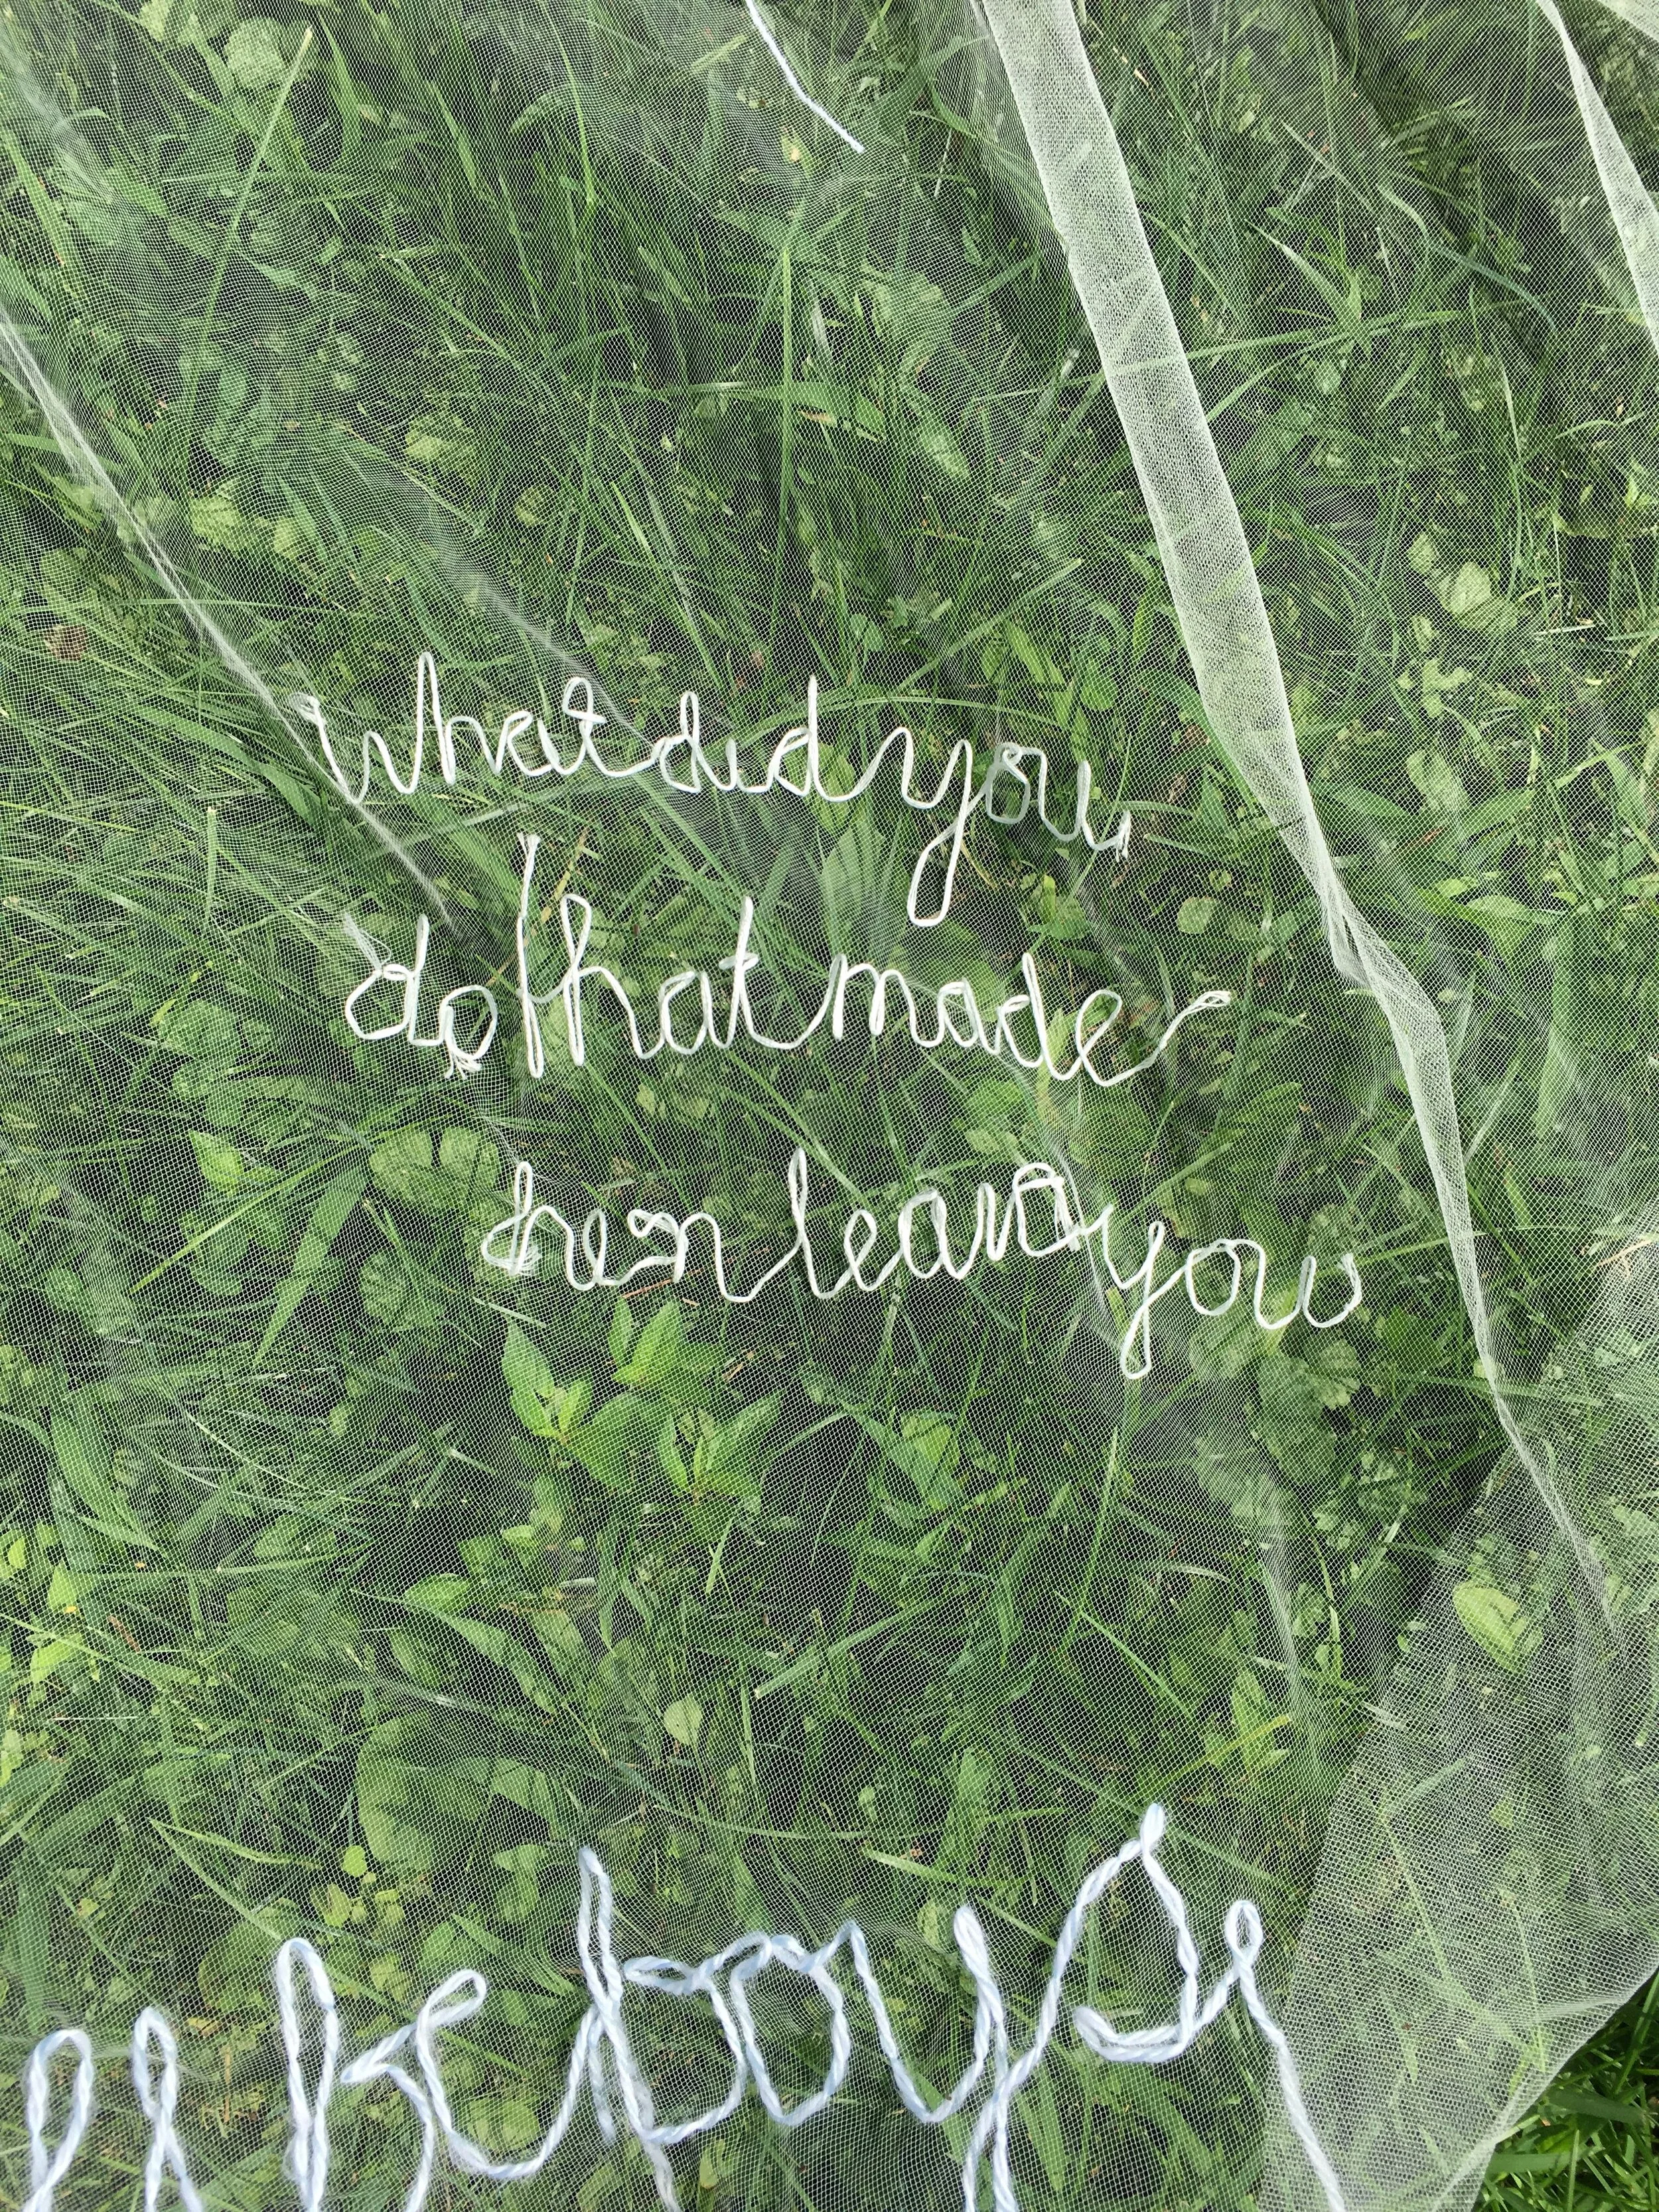 what did you
do that made
them leave you
boys